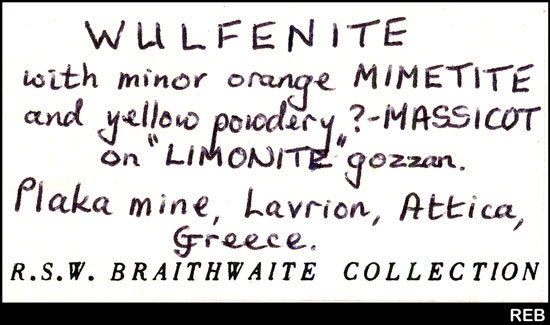 WULFENITE
with minor orange MIMETITE
and yellow powdery ?-MASSICOT
on "LIMONITE" gozzan.
Plaka mine, Lavrion, Attica,
Greece.
R.S.W. BRAITHWAITE COLLECTION
REB